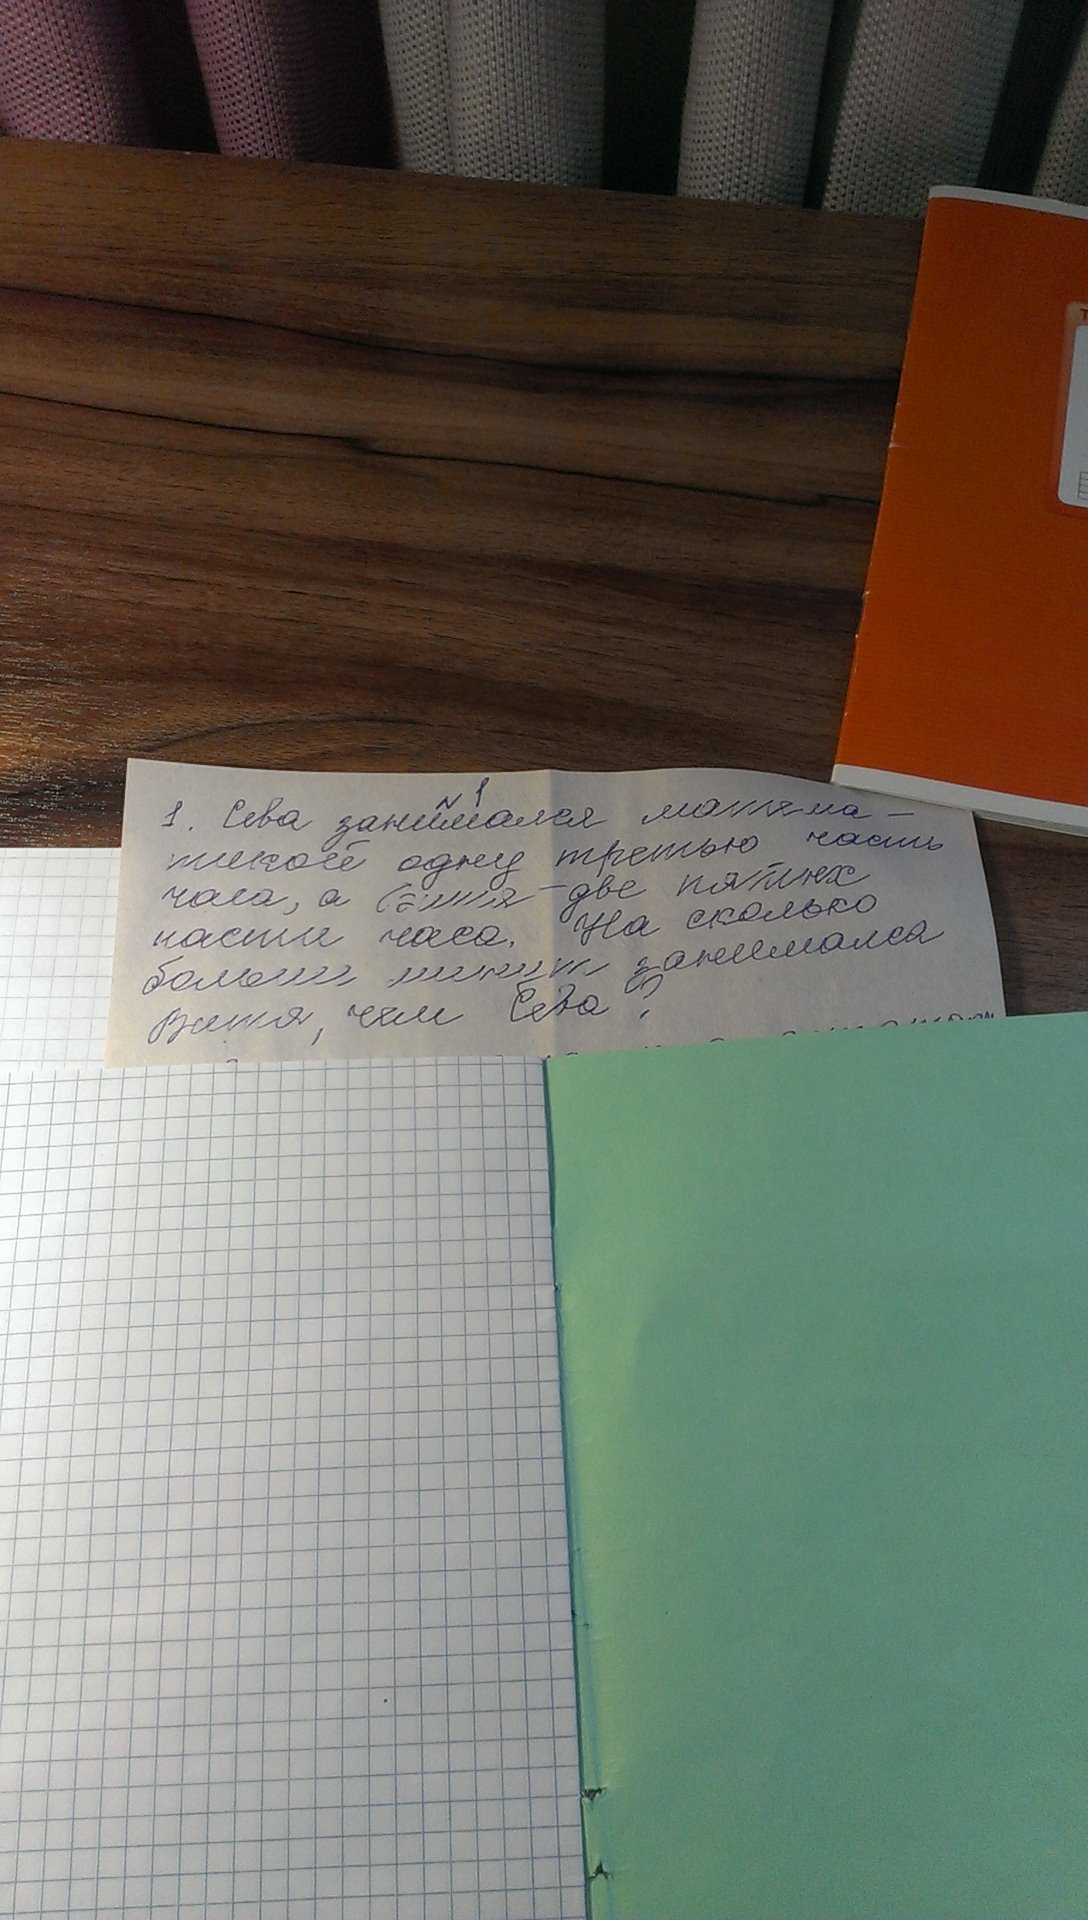 №1
1. Сева занимался матема-
тикой одну третью часть
часа, а Витя - две пятых
части часа. На сколько
больше минут занимался
Витя, чем Сева?